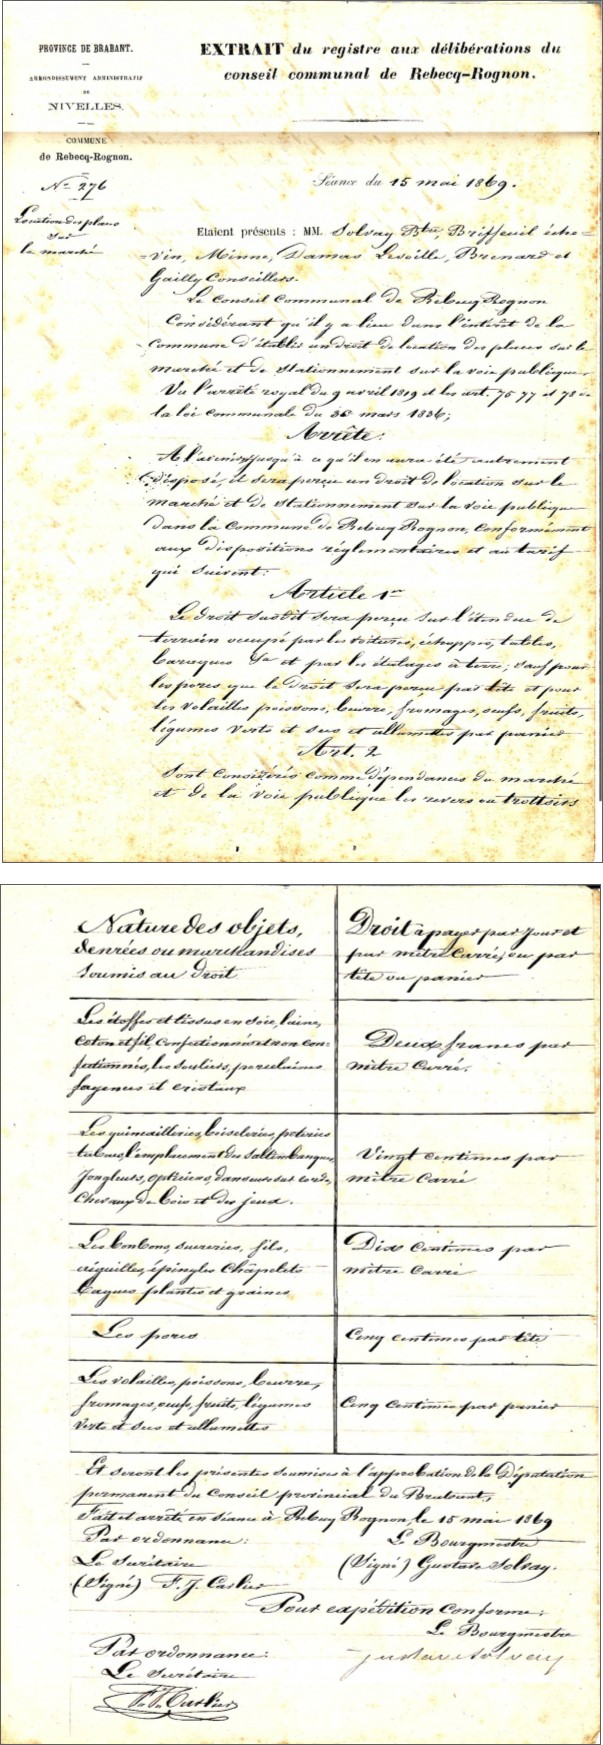 PROVINCE DE BRABANT.
ARRONDISSEMENT ADMINISTRATIF
DE
NIVELLES.
EXTRAIT du registre aux délibérations du
conseil communal de Rebecq-Rognon.
COMMUNE
de Rebecq-Rognon.
N° 276
Location des places
sur
le marché
Séance du 15 mai 1869.
Etaient présents : MM. Solvay Btre, Briffeuil éche=
=vin, Minne, Damas Brenard et
Gailly Conseillers.
Le Conseil Communal de Rebecq Rognon
Considérant qu'il y a lieu dans l'intérêt de la
Commune d'établir un droit de location des places sur le
marché et de stationnement sur la voie publique
Vu l'arrêté royal du 9 avril 1819 et les art. 75 77 et 78 de
la loi communale du 30 mars 1836;
Arrête:
A l'avenir, jusqu'à ce qu'il en aura été autrement
disposé, il sera perçu un droit de location sur le
marché et de stationnement sur la voie publique
dans la Commune de Rebecq Rognon, conformément
aux dispositions réglementaires et au tarif
qui suivent:
Article 1er
Le droit susdit sera perçu sur l'étendue de
terrain occupé par les voitures, échoppes, tables,
baraques &a et par les étalages à terre; sauf pour
les porcs que le droit sera perçu par tête et pour
les volailles poissons, beurre, fromages, oeufs, fruits,
légumes verts et secs et allumettes par panier
Art. 2
Sont considérés comme dépendances du marché
et de la voie publique les revers ou trottoirs
Nature des objets,
denrées ou marchandises
soumis au droit
Droit à payer par jour et
par mètre carré, ou par
tête ou panier
Les étoffes et tissus en soie, laine,
coton et fil, confectionnés et non con=
fectionnés, les souliers, porcelaines
fayences et cristaux
Deux francs par
mètre carré.
Les quincailleries, boiseleries, poteries
tabacs, l'emplacement des saltimbanques,
jongleurs, opticiens, danseurs sur corde,
chevaux de bois et des jeux.
Vingt centimes par
mètre carré
Les bonbons, sucreries, fils,
aiguilles, épingles chapelets
bagues plantes et graines
Dix centimes par
mètre carré
Les porcs
Cinq centimes par tête
Les volailles, poissons, beurre,
fromages, oeufs, fruits, légumes
verts et secs et allumettes
Cinq centimes par panier
Et seront les présentes soumises à l'approbation de la Députation
permanente du Conseil provincial du Brabant,
Fait et arrêté en séance à Rebecq Rognon, le 15 mai 1869
Par ordonnance:
Le Bourgmestre
Le Secrétaire
(Signé) Gustave Solvay.
(Signé) F. J. Carlier
Pour expédition conforme:
Le Bourgmestre
Par ordonnance:
Gustave Solvay
Le Secrétaire
F. J. Carlier